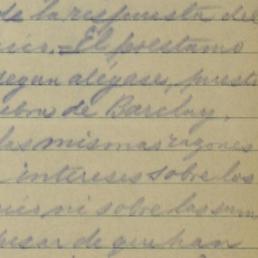 de la respuesta del
rico.- El préstamo
segun alégase, puest
de Barclay,
las mismas razones
intereses sobre los
rico ni sobre las sum
pesar de que han